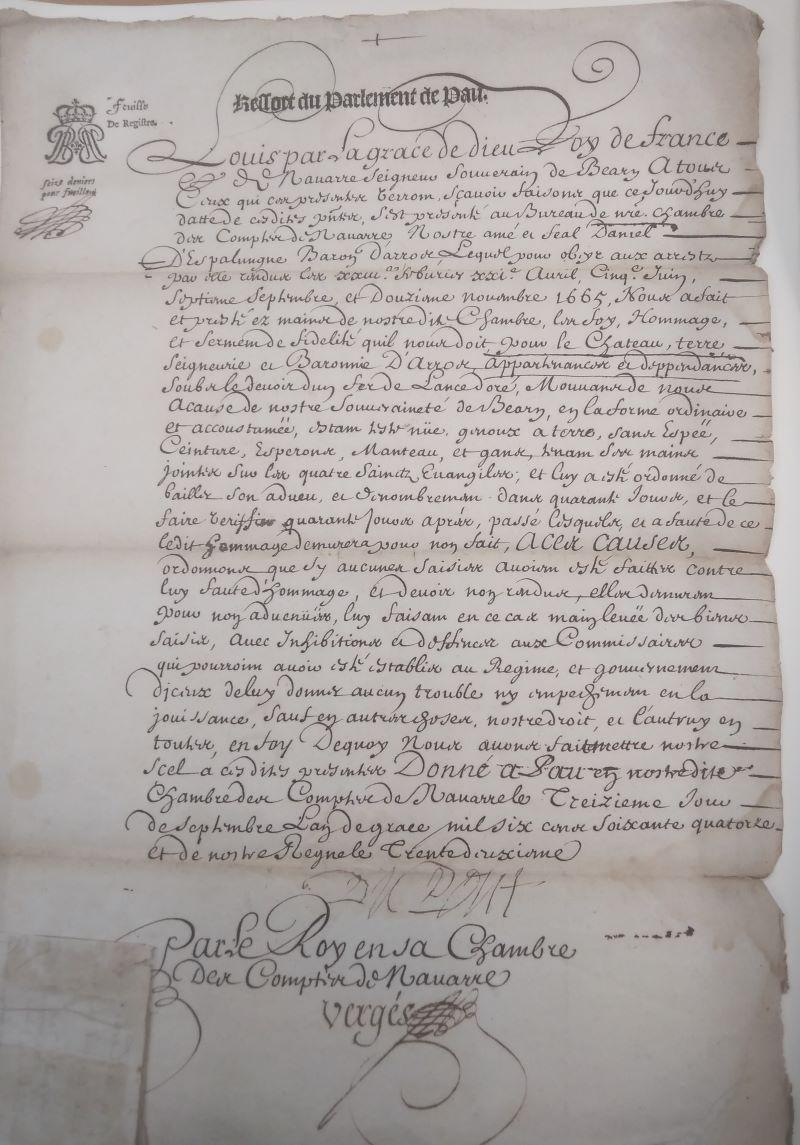 Ressort du Parlement de Pau.
Feuille
De Registre.
seize deniers
pour feuillet
Louis par La grace de dieu Roy de france
et De Navarre Seigneur Souverain de Bearn A tous
Ceux qui ces presentes verront, sçavoir faisons que ce Jourdhuy
datte de cesdites pñtes, s'est presenté au Bureau de nrẽ Chambre
des Comptes de Navarre Nostre amé et feal Daniel
D'Espalungue Baron d'arros, Lequel pour obeyr aux arrests
par elle rendus les xxiii.e feburier xxi.e Avril, Cinq.e Juin,
Septieme Septembre, et Douzieme novembre 1665, Nous a fait
et presté ez mains de nostredite Chambre, les foy, Hommage,
et serment de fidelité quil nous doit pour le Chateau, terre
Seigneurie et Baronnie D'Arros, appartenances et deppendances,
soubs le devoir dun fer de Lance doré, Mouvans de nous
A cause de nostre Souveraineté de Bearn, en la forme ordinaire
et accoustumée, estant teste nüe, genoux a terre, sans Espeë,
Ceinture, Esperons, Manteau, et gans, tenant ses mains
jointes sur les quatre saincts Evangiles, et luy a esté ordonné de
bailler son adveu, et denombrement dans quarante Jours, et le
faire veriffier quarante jours aprés, passé lesquels, et a faute de ce
ledit hommage demurera pour non fait, A CES CAUSES,
ordonnons que sy aucunes saisies avoient esté faittes contre
luy faute d'hommage, et devoir non rendus, elles demurent
pour non advenües, luy faisant en ce cas main levée des biens
saisis, avec Inhibitions et deffences aux Commissaires
qui pourroint avoir esté establis au Regime, et gouvernement
diceux deluy donner aucun trouble ny empechement en la
jouissance, sauf en autres choses, nostre droit, et l'autruy en
toutes, en foy Dequoy Nous avons fait mettre nostre
scel a cesdites presentes Donné a Pau en nostredite
Chambre des Comptes de Navarre le Treizieme Jour
de Septembre L'an de grace mil six cens soixante quatorze
et de nostre Regne le Trentedeuxieme
Par Le Roy en sa Chambre
Des Comptes de Navarre
Vergés